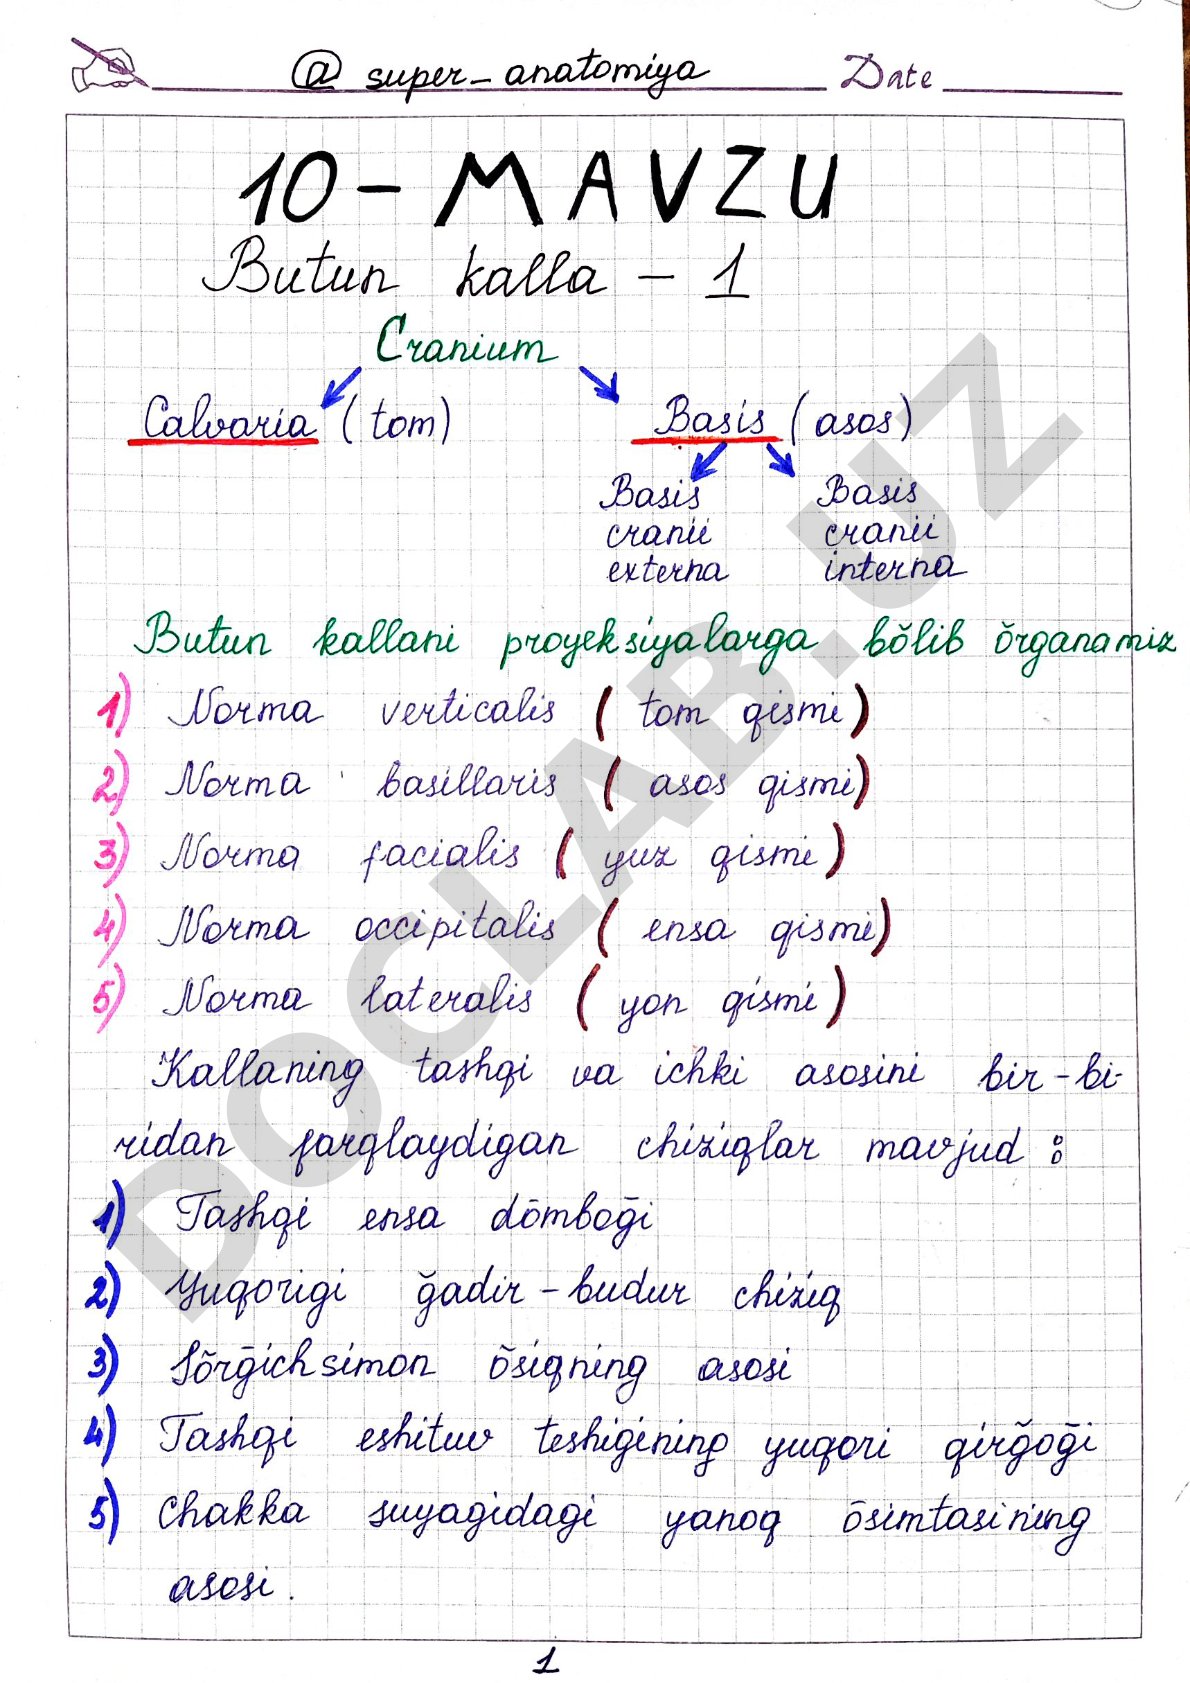 @ super-anatomiya Date
10-MAVZU
Butun kalla - 1
Cranium
Calvaria (tom) Basis (asos)
Basis Basis
cranii cranii
externa interna
Butun kallani proyeksiyalarga bŏlib ŏrganamiz
1) Norma verticalis (tom qismi)
2) Norma basillaris (asos qismi)
3) Norma facialis (yuz qismi)
4) Norma occipitalis (ensa qismi)
5) Norma lateralis (yon qismi)
Kallaning tashqi va ichki asosini bir-bi-
ridan farqlaydigan chiziqlar mavjud:
1) Tashqi ensa dōmboḡi
2) Yuqorigi ğadir-budur chiziq
3) Sōrḡichsimon ōsiqning asosi
4) Tashqi eshituv teshigining yuqori qirğoḡi
5) Chakka suyagidagi yanoq ōsimtasining
asosi.
1
DOCLAB.UZ